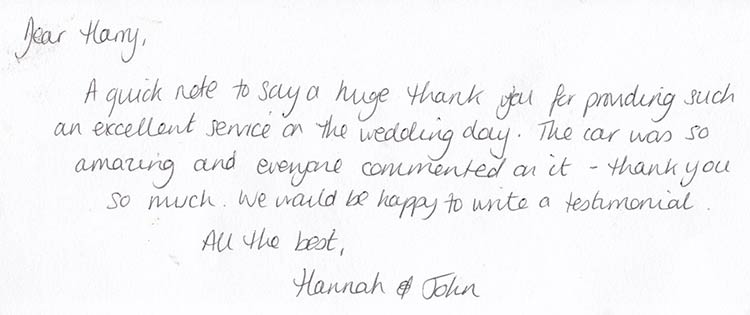 Dear Harry,
A quick note to say a huge thank you for providing such
an excellent service on the wedding day. The car was so
amazing and everyone commented on it - thank you
so much. We would be happy to write a testimonial.
All the best,
Hannah & John